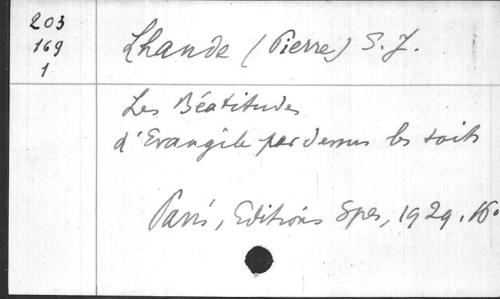 203
169
1
Lhande (Pierre) S. J.
Les Béatitudes
d'Evangile par dessus les toits
Paris, Editions Spes, 1929. 16°